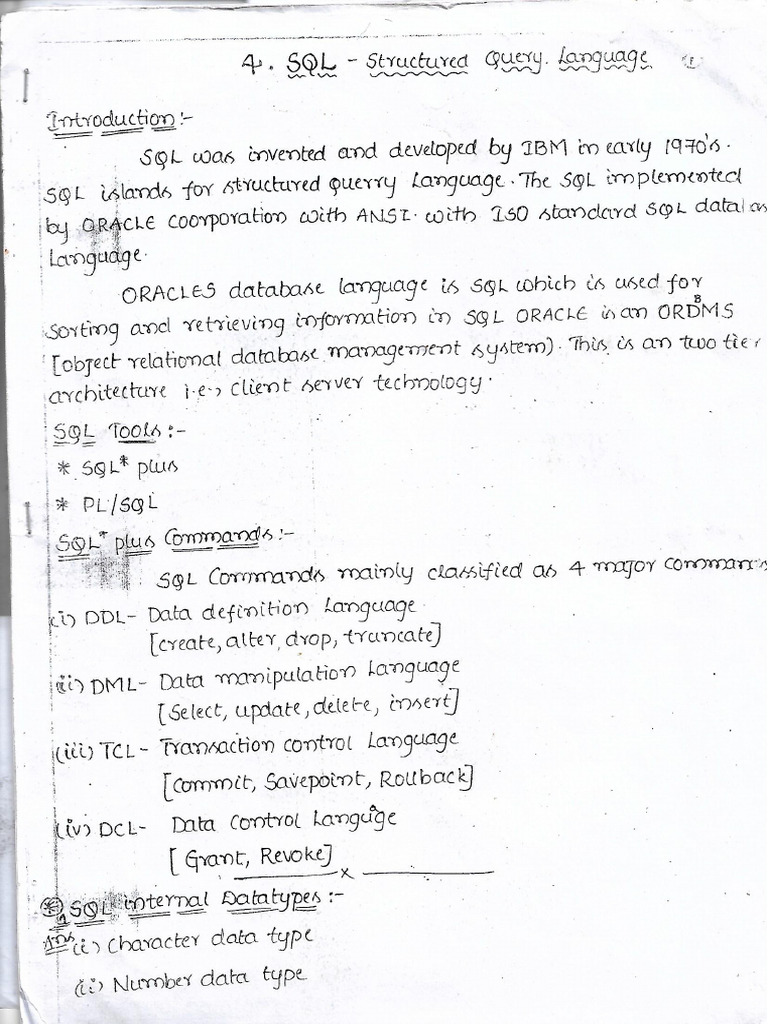 4. SQL - Structured Query Language 1
Introduction:-
SQL was invented and developed by IBM in early 1970's.
SQL islands for structured querry Language. The SQL implemented
by ORACLE coorporation with ANSI. with ISO standard SQL data
Language.
ORACLES database language is SQL which is used for
Sorting and retrieving information in SQL ORACLE is an ORDBMS
[object relational database management system). This is an two tier
architecture i.e., client server technology.
SQL Tools:-
* SQL* plus
* PL/SQL
SQL* plus Commands:-
SQL Commands mainly classified as 4 major comman
(i) DDL- Data definition Language
[create, alter, drop, truncate]
(ii) DML- Data manipulation Language
[Select, update, delete, insert]
(iii) TCL- Transaction control Language
[Commit, Savepoint, Rollback]
(iv) DCL- Data Control Language
[Grant, Revoke]
x
SQL internal Datatypes:-
Ans (i) Character data type
(ii) Number data type